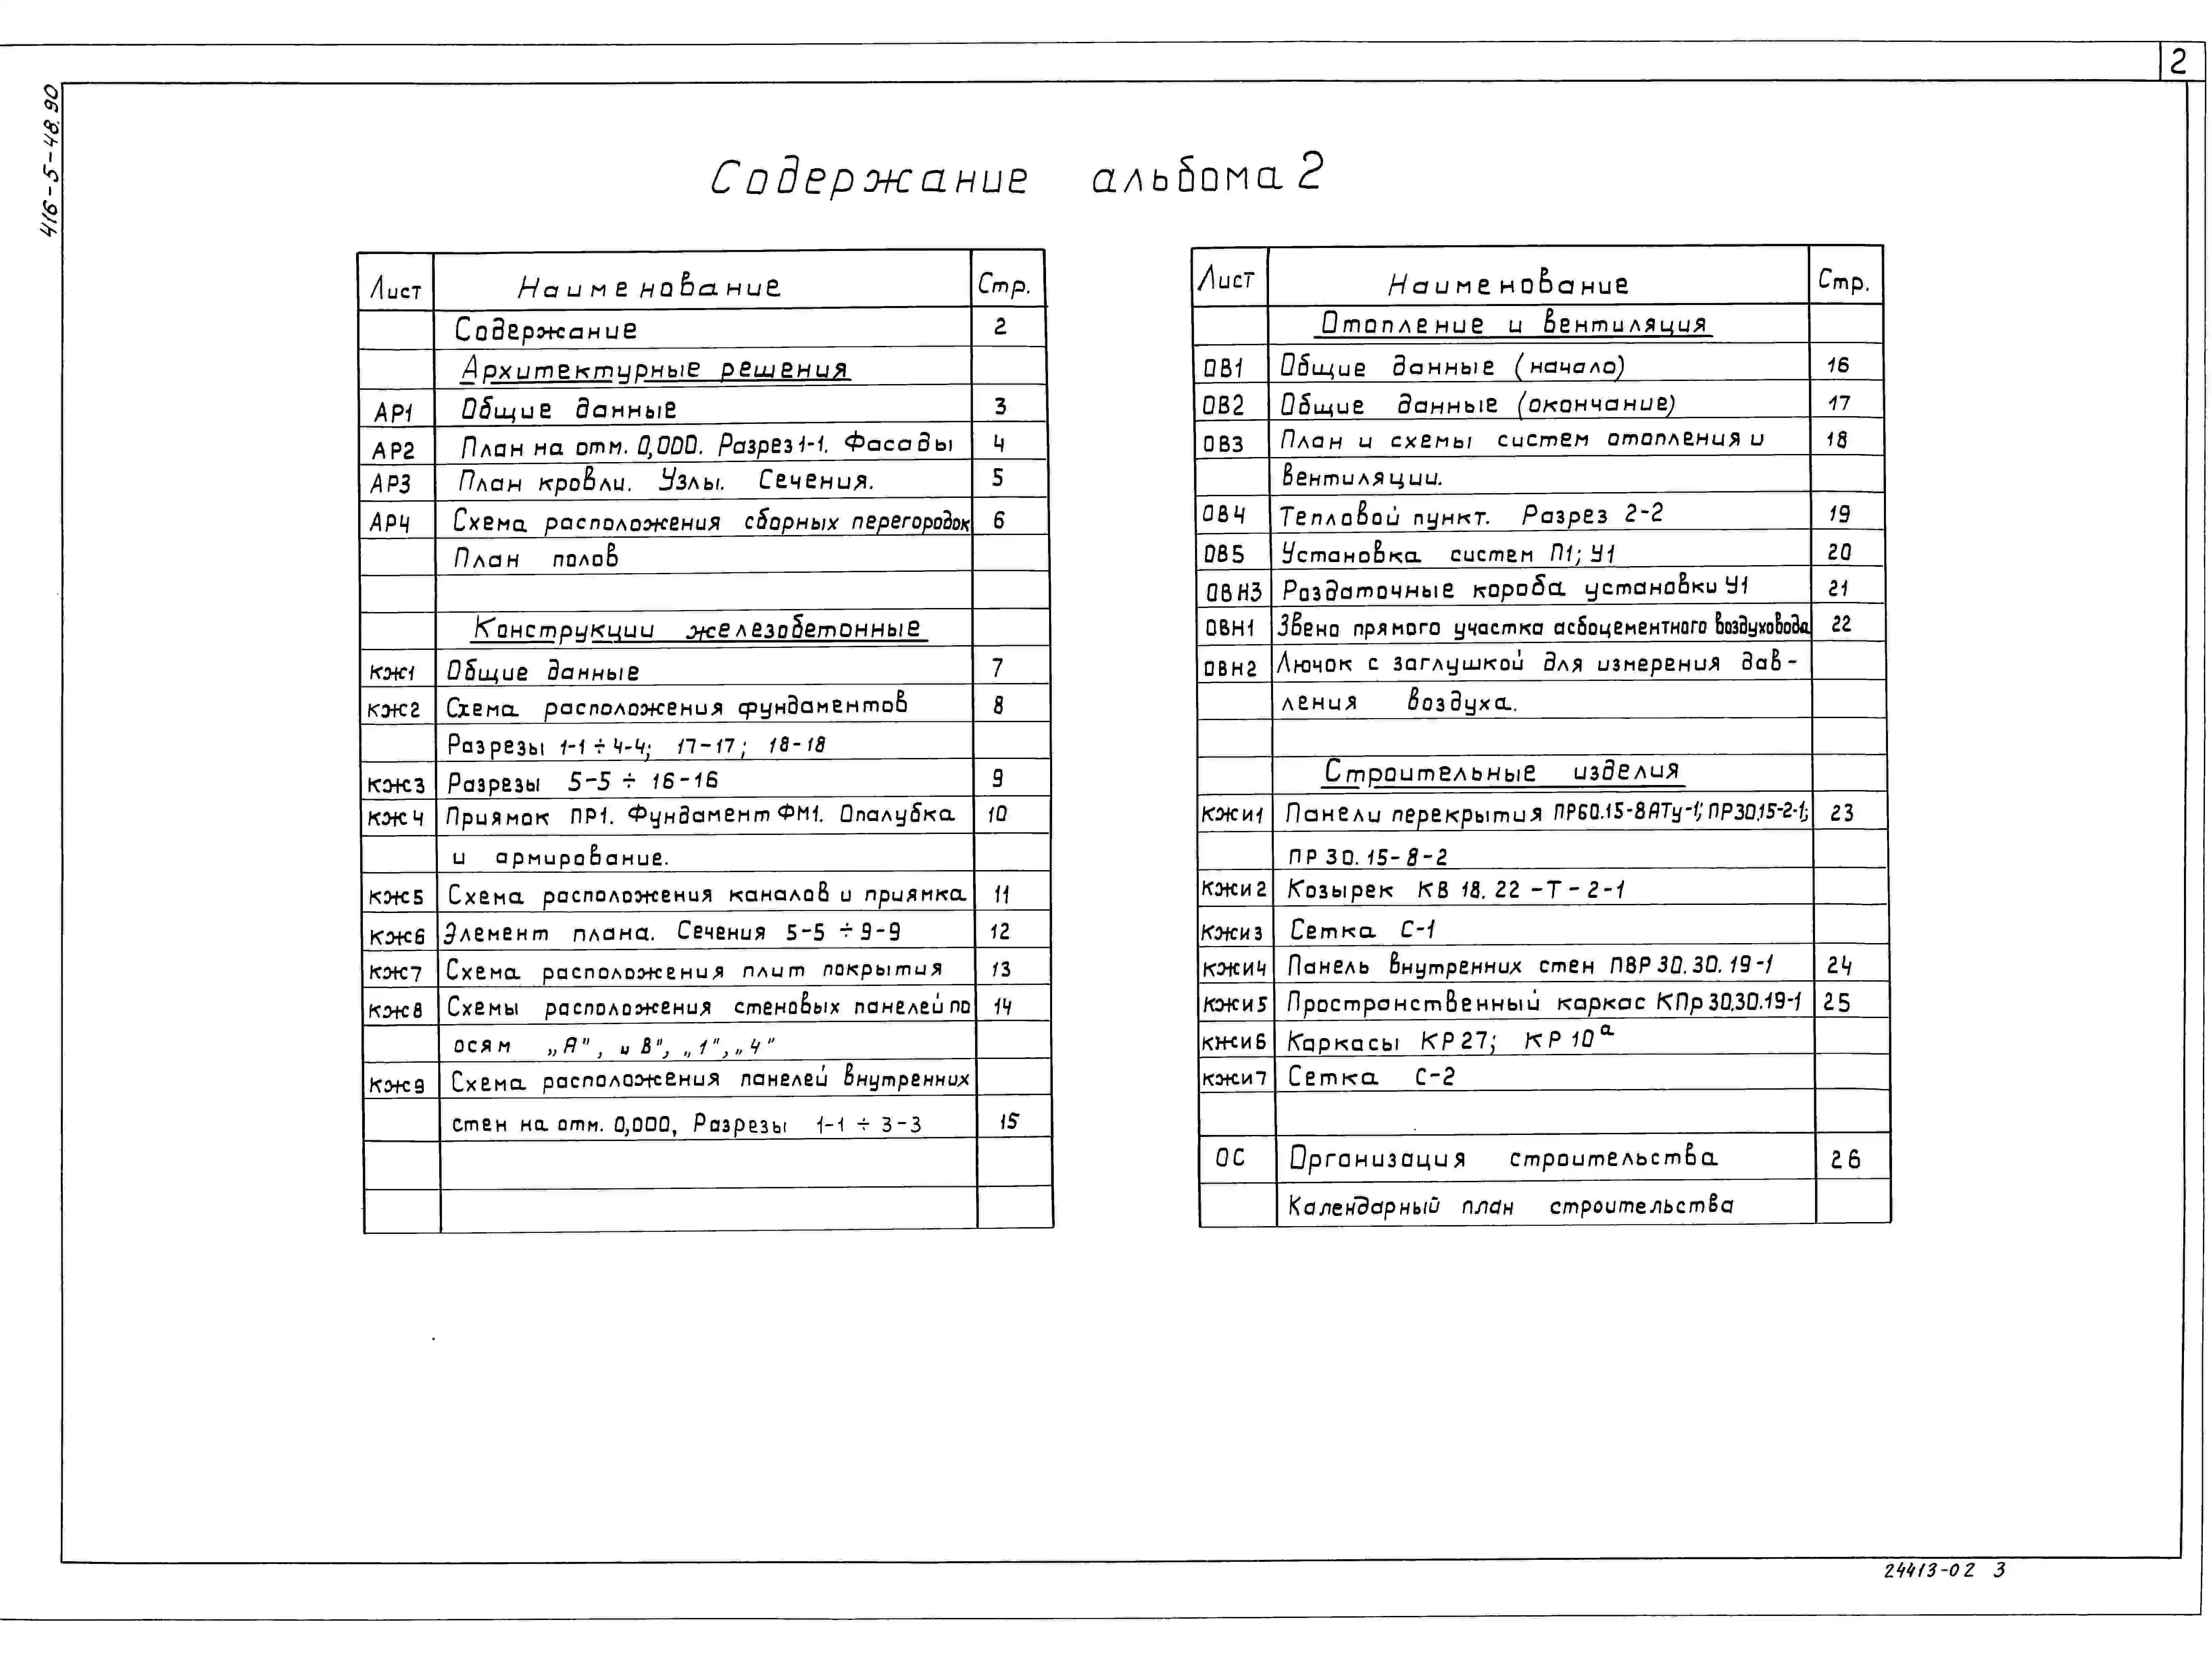 2
416-5-48.90
Содержание альбома 2
Лист Наименование Стр.
Содержание 2
Архитектурные решения
АР1 Общие данные 3
АР2 План на отм. 0,000. Разрез 1-1. Фасады 4
АР3 План кровли. Узлы. Сечения. 5
АР4 Схема расположения сборных перегородок 6
План полов
Конструкции железобетонные
КЖ1 Общие данные 7
КЖ2 Схема расположения фундаментов 8
Разрезы 1-1 ÷ 4-4; 17-17; 18-18
КЖ3 Разрезы 5-5 ÷ 16-16 9
КЖ4 Приямок ПР1. Фундамент ФМ1. Опалубка 10
и армирование.
КЖ5 Схема расположения каналов и приямка 11
КЖ6 Элемент плана. Сечения 5-5 ÷ 9-9 12
КЖ7 Схема расположения плит покрытия 13
КЖ8 Схемы расположения стеновых панелей по 14
осям „А", „В", „1", „4"
КЖ9 Схема расположения панелей внутренних
стен на отм. 0,000, Разрезы 1-1 ÷ 3-3 15
Лист Наименование Стр.
Отопление и вентиляция
ОВ1 Общие данные (начало) 16
ОВ2 Общие данные (окончание) 17
ОВ3 План и схемы систем отопления и 18
вентиляции.
ОВ4 Тепловой пункт. Разрез 2-2 19
ОВ5 Установка систем П1; У1 20
ОВН3 Раздаточные короба установки У1 21
ОВН1 Звено прямого участка асбоцементного воздуховода 22
ОВН2 Лючок с заглушкой для измерения дав-
ления воздуха.
Строительные изделия
КЖИ1 Панели перекрытия ПР60.15-8АТу-1; ПР30.15-2-1; 23
ПР 30.15-8-2
КЖИ2 Козырек КВ 18.22-Т-2-1
КЖИ3 Сетка С-1
КЖИ4 Панель внутренних стен ПВР 30.30.19-1 24
КЖИ5 Пространственный каркас КПр 30.30.19-1 25
КЖИ6 Каркасы КР27; КР 10а
КЖИ7 Сетка С-2
ОС Организация строительства 26
Календарный план строительства
24413-02 3